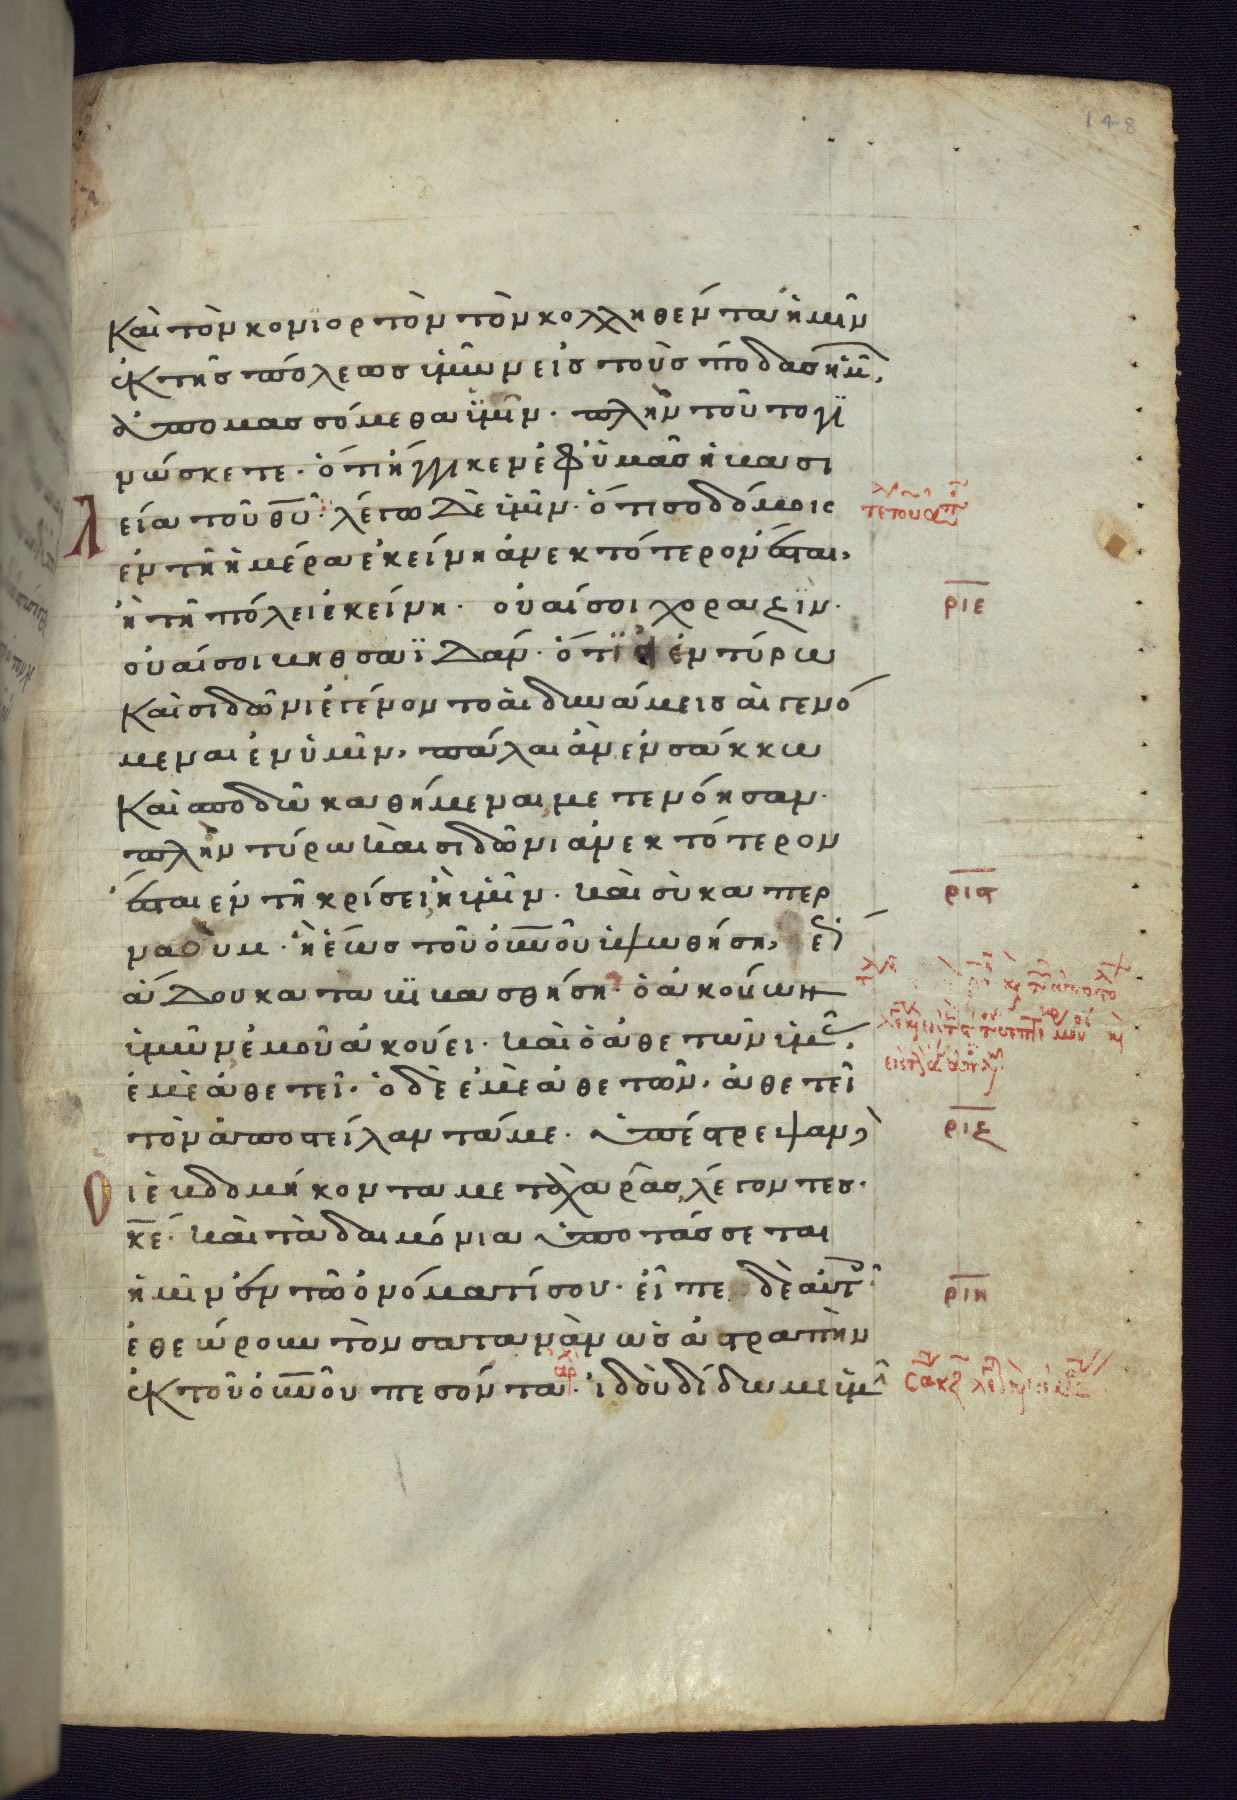 148
Καὶ τὸν κονϊορτὸν τὸν κολληθέντα ἡμῖν
ἐκ τῆς πόλεως ὑμῶν εἰς τοὺς πόδας ἡμῶ,
ἀπομασσόμεθα ϋμῖν. πλὴν τοῦτο γϊ
νώσκετε. ὅτι ἤγγικεν ἐφ ὑμᾶς ἡ βασι
λεία τοῦ θυ. λέγω δὲ ὑμῖν. ὅτι σοδόμοις
ἐν τῆ ἡμέρα ἐκείνη ἀνεκτότερον ἔσται,
ἢ τῆ πόλει ἐκείνη. οὐαί σοι χοραζϊν.
ριε
οὐαί σοι βηθσαϊδάν. ὅτϊ εἰ ἐν τύρω
Καὶ σιδῶνι ἐγένοντο αἱ δυνάμεις αἱ γενό
μεναι ἐν ὑμῖν, πάλαι ἂν ἐν σάκκω
Καὶ σποδῶ καθήμεναι μετενόησαν.
πλὴν τύρω καὶ σιδῶνι ἀνεκτότερον
ἔσται ἐν τῆ κρίσει, ἢ ὑμῖν. καὶ σὺ καπερ
ρις
ναούμ. ἡ ἕως τοῦ οὐνοῦ ὑψωθήση,
ἅδου καταβϊβασθήση. ὁ ἀκούων
ὑμῶν ἐμοῦ ἀκούει. καὶ ὁ ἀθετῶν ὑμᾶς,
ἐμὲ ἀθετεῖ. ὁ δὲ ἐμὲ ἀθετῶν, ἀθετεῖ
τὸν ἀποστείλαντά με. ὑπέστρεψαν δὲ
ριζ
οἱ ἑβδομήκοντα μετὰ χαρᾶς, λέγοντες.
κε. καὶ τὰ δαιμόνια ὑποτάσσεται
ἡμῖν ἐν τῶ ὀνόματί σου. εἶπε δὲ αὐτ
ριη
ἐθεώρουν τὸν σατανὰν ὡς ἀστραπὴν
ἐκ τοῦ οὐνοῦ πεσόντα. ἰδοὺ δίδωμι ὑμ